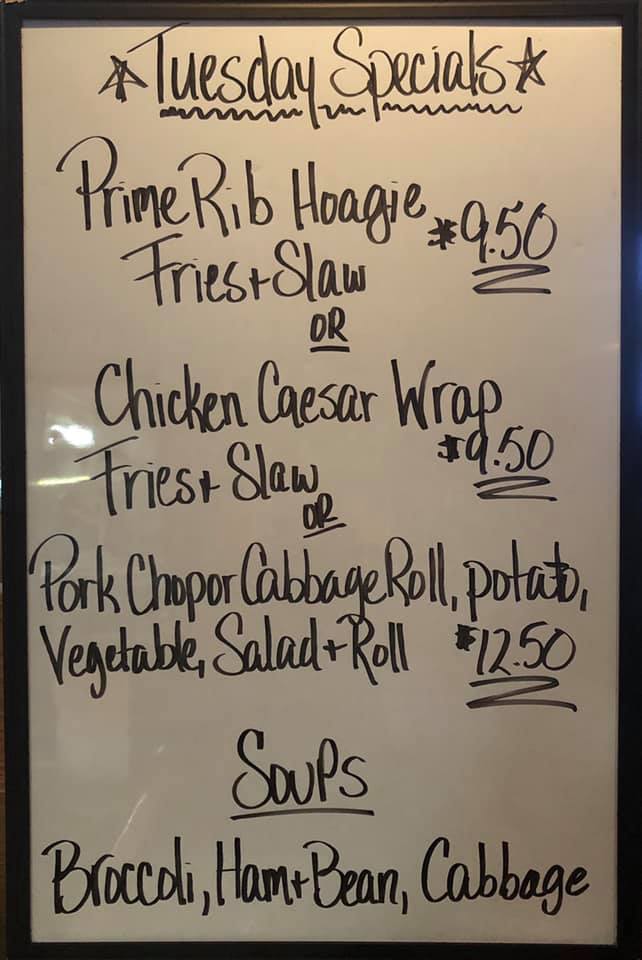 ☆Tuesday Specials☆
Prime Rib Hoagie $9.50
Fries + Slaw
OR
Chicken Caesar Wrap
Fries + Slaw $9.50
OR
Pork Chop or Cabbage Roll, potato,
Vegetable, Salad + Roll $12.50
Soups
Broccoli, Ham + Bean, Cabbage